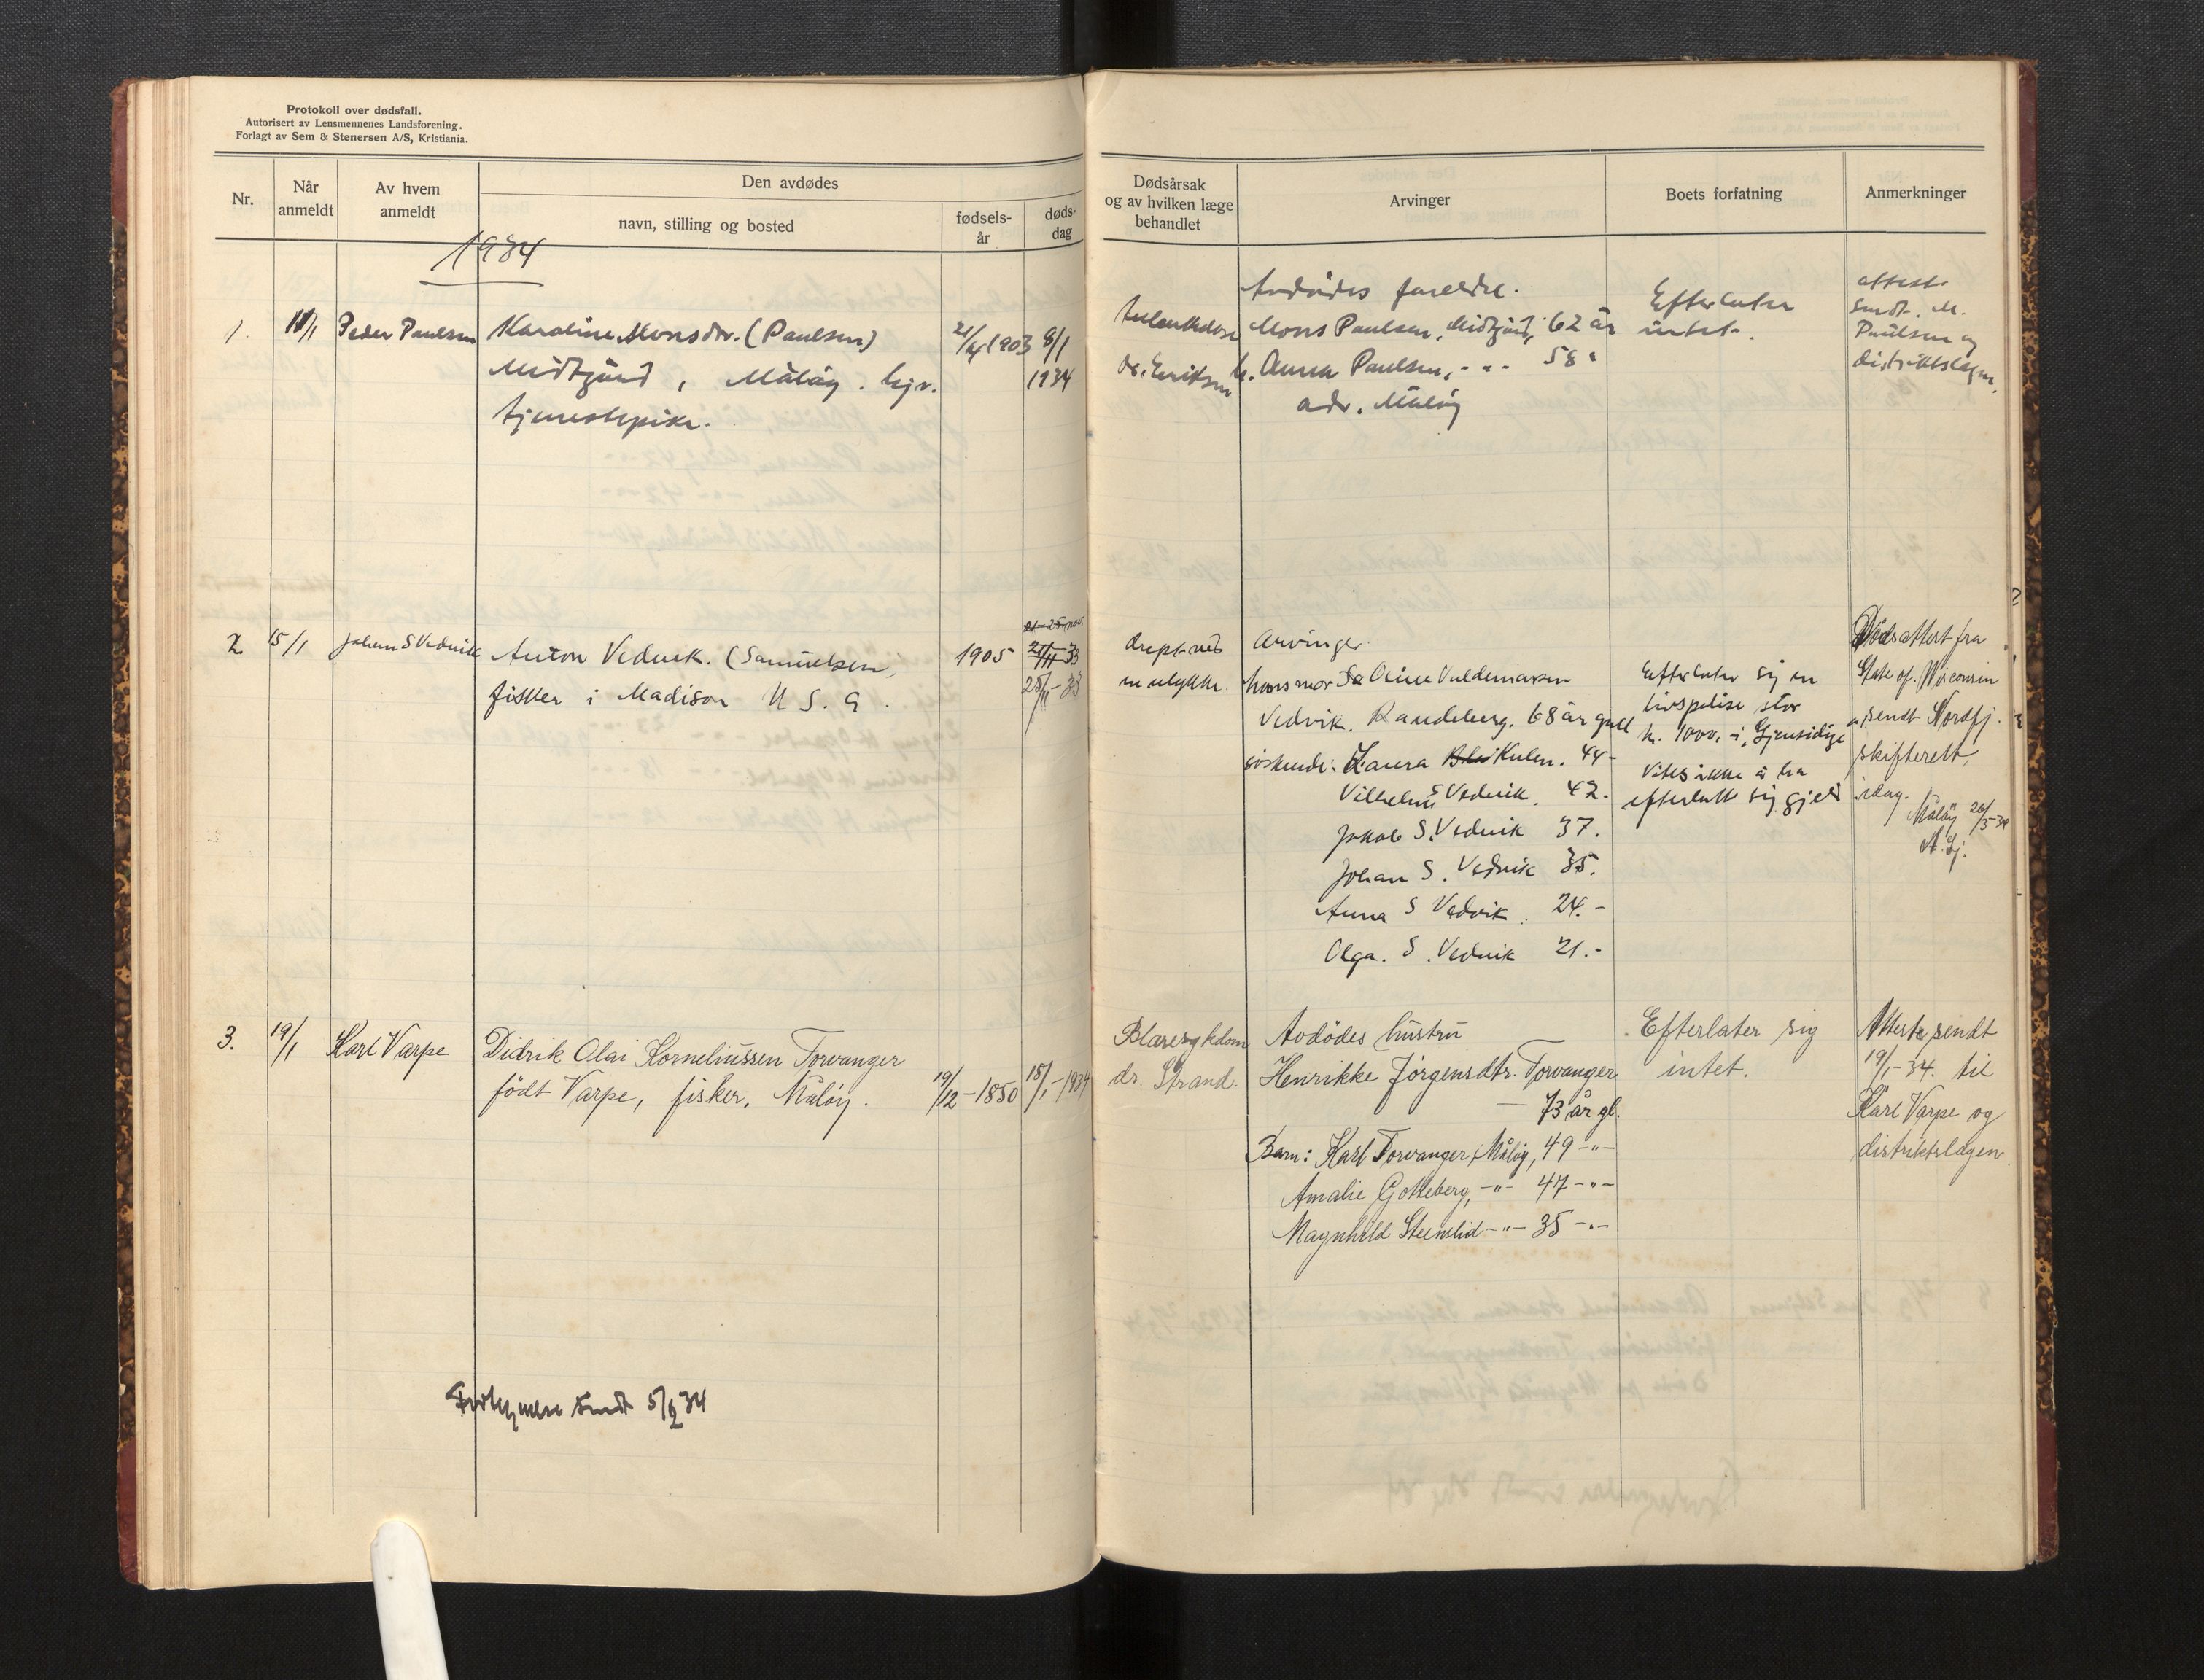 Protokoll over dødsfall.
Autorisert av Lensmennenes Landsforening.
Forlagt av Sem & Stenersen A/S, Kristiania.
Nr.
Når anmeldt
Av hvem anmeldt
Den avdødes
navn, stilling og bosted
fødsels-år
døds-dag
1934
1. 11/1 Peder Paulsen Karoline Monsdtr. (Paulsen) 21/4 1903 8/1
Midtgård, Måløy. 1934
tjenestepike.
2 15/1 Johan S Vedvik Anton Vedvik. (Samuelsen) 1905
fisker i Madison U S. A. 28/11-33
3. 19/1 Karl Varpe Didrik Olai Korneliussen Torvanger
født Varpe, fisker, Måløy. 19/12-1850 18/1-1934
sendt 5/2 34
Dødsårsak
og av hvilken læge
behandlet
Arvinger
Boets forfatning
Anmerkninger
Avdødes foreldre.
Mons Paulsen, Midtgård, 62 år
dr. Eriksen Anna Paulsen, - " - 58 "
adr. Måløy
Efterlater
intet.
attest
sendt. M.
Paulsen og
distriktslegen.
drept ved
en ulykke.
Arvinger.
hans mor Oline Valdemarsen
Vedvik. Raudeberg. 68 år gall
søskende: Laura Kulen. 44 -
Vilhelm S Vedvik. 42.
Jakob S. Vedvik 37.
Johan S. Vedvik 35.
Anna S Vedvik. 24. -
Olga. S. Vedvik 21. -
Efterlater sig en
livspolise stor
kr. 1000, i Gjensidige
Vites ikke å ha
efterlatt sig gjeld
Dødsattest fra
State of. Wisconsin
sendt Nordfj.
skifterett,
idag.
Måløy 26/3-34
Blæresykdom
dr. Strand.
Avdødes hustru
Henrikke Jørgensdtr. Torvanger
— 73 år gl.
Barn: Karl Torvanger, Måløy, 49 -"-
Amalie Gotteberg, -"- 47 -"-
Magnhild Steinslid -"- 35 -"-
Efterlater sig
intet.
Attester sendt
19/1-34. til
Karl Varpe og
distriktslægen